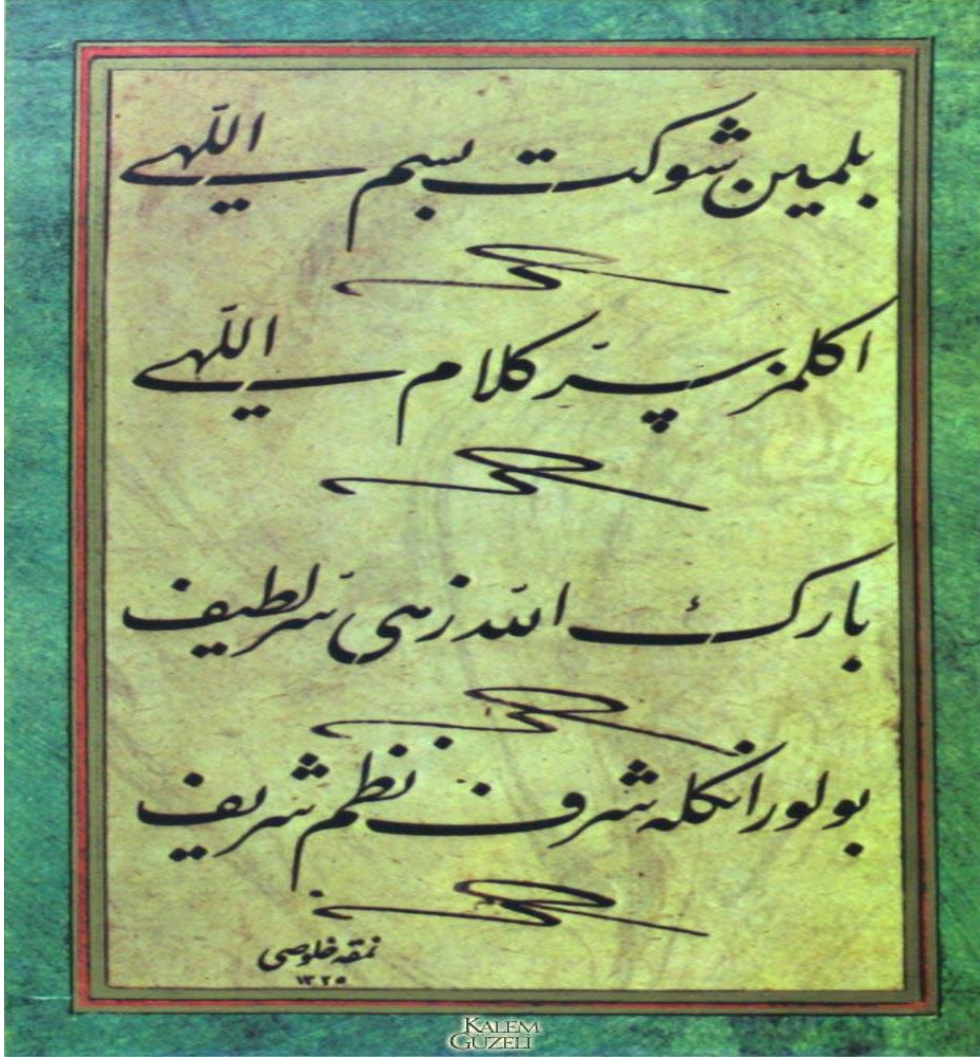 بلمين شوكت بسم اللّهى
اكلمز سرّ كلام اللّهى
بارك اللّه زهى سرّ لطيف
بولور انكله شرف نظم شريف
نمقه خلوصى
١٣٢٥
KALEM
GÜZELİ